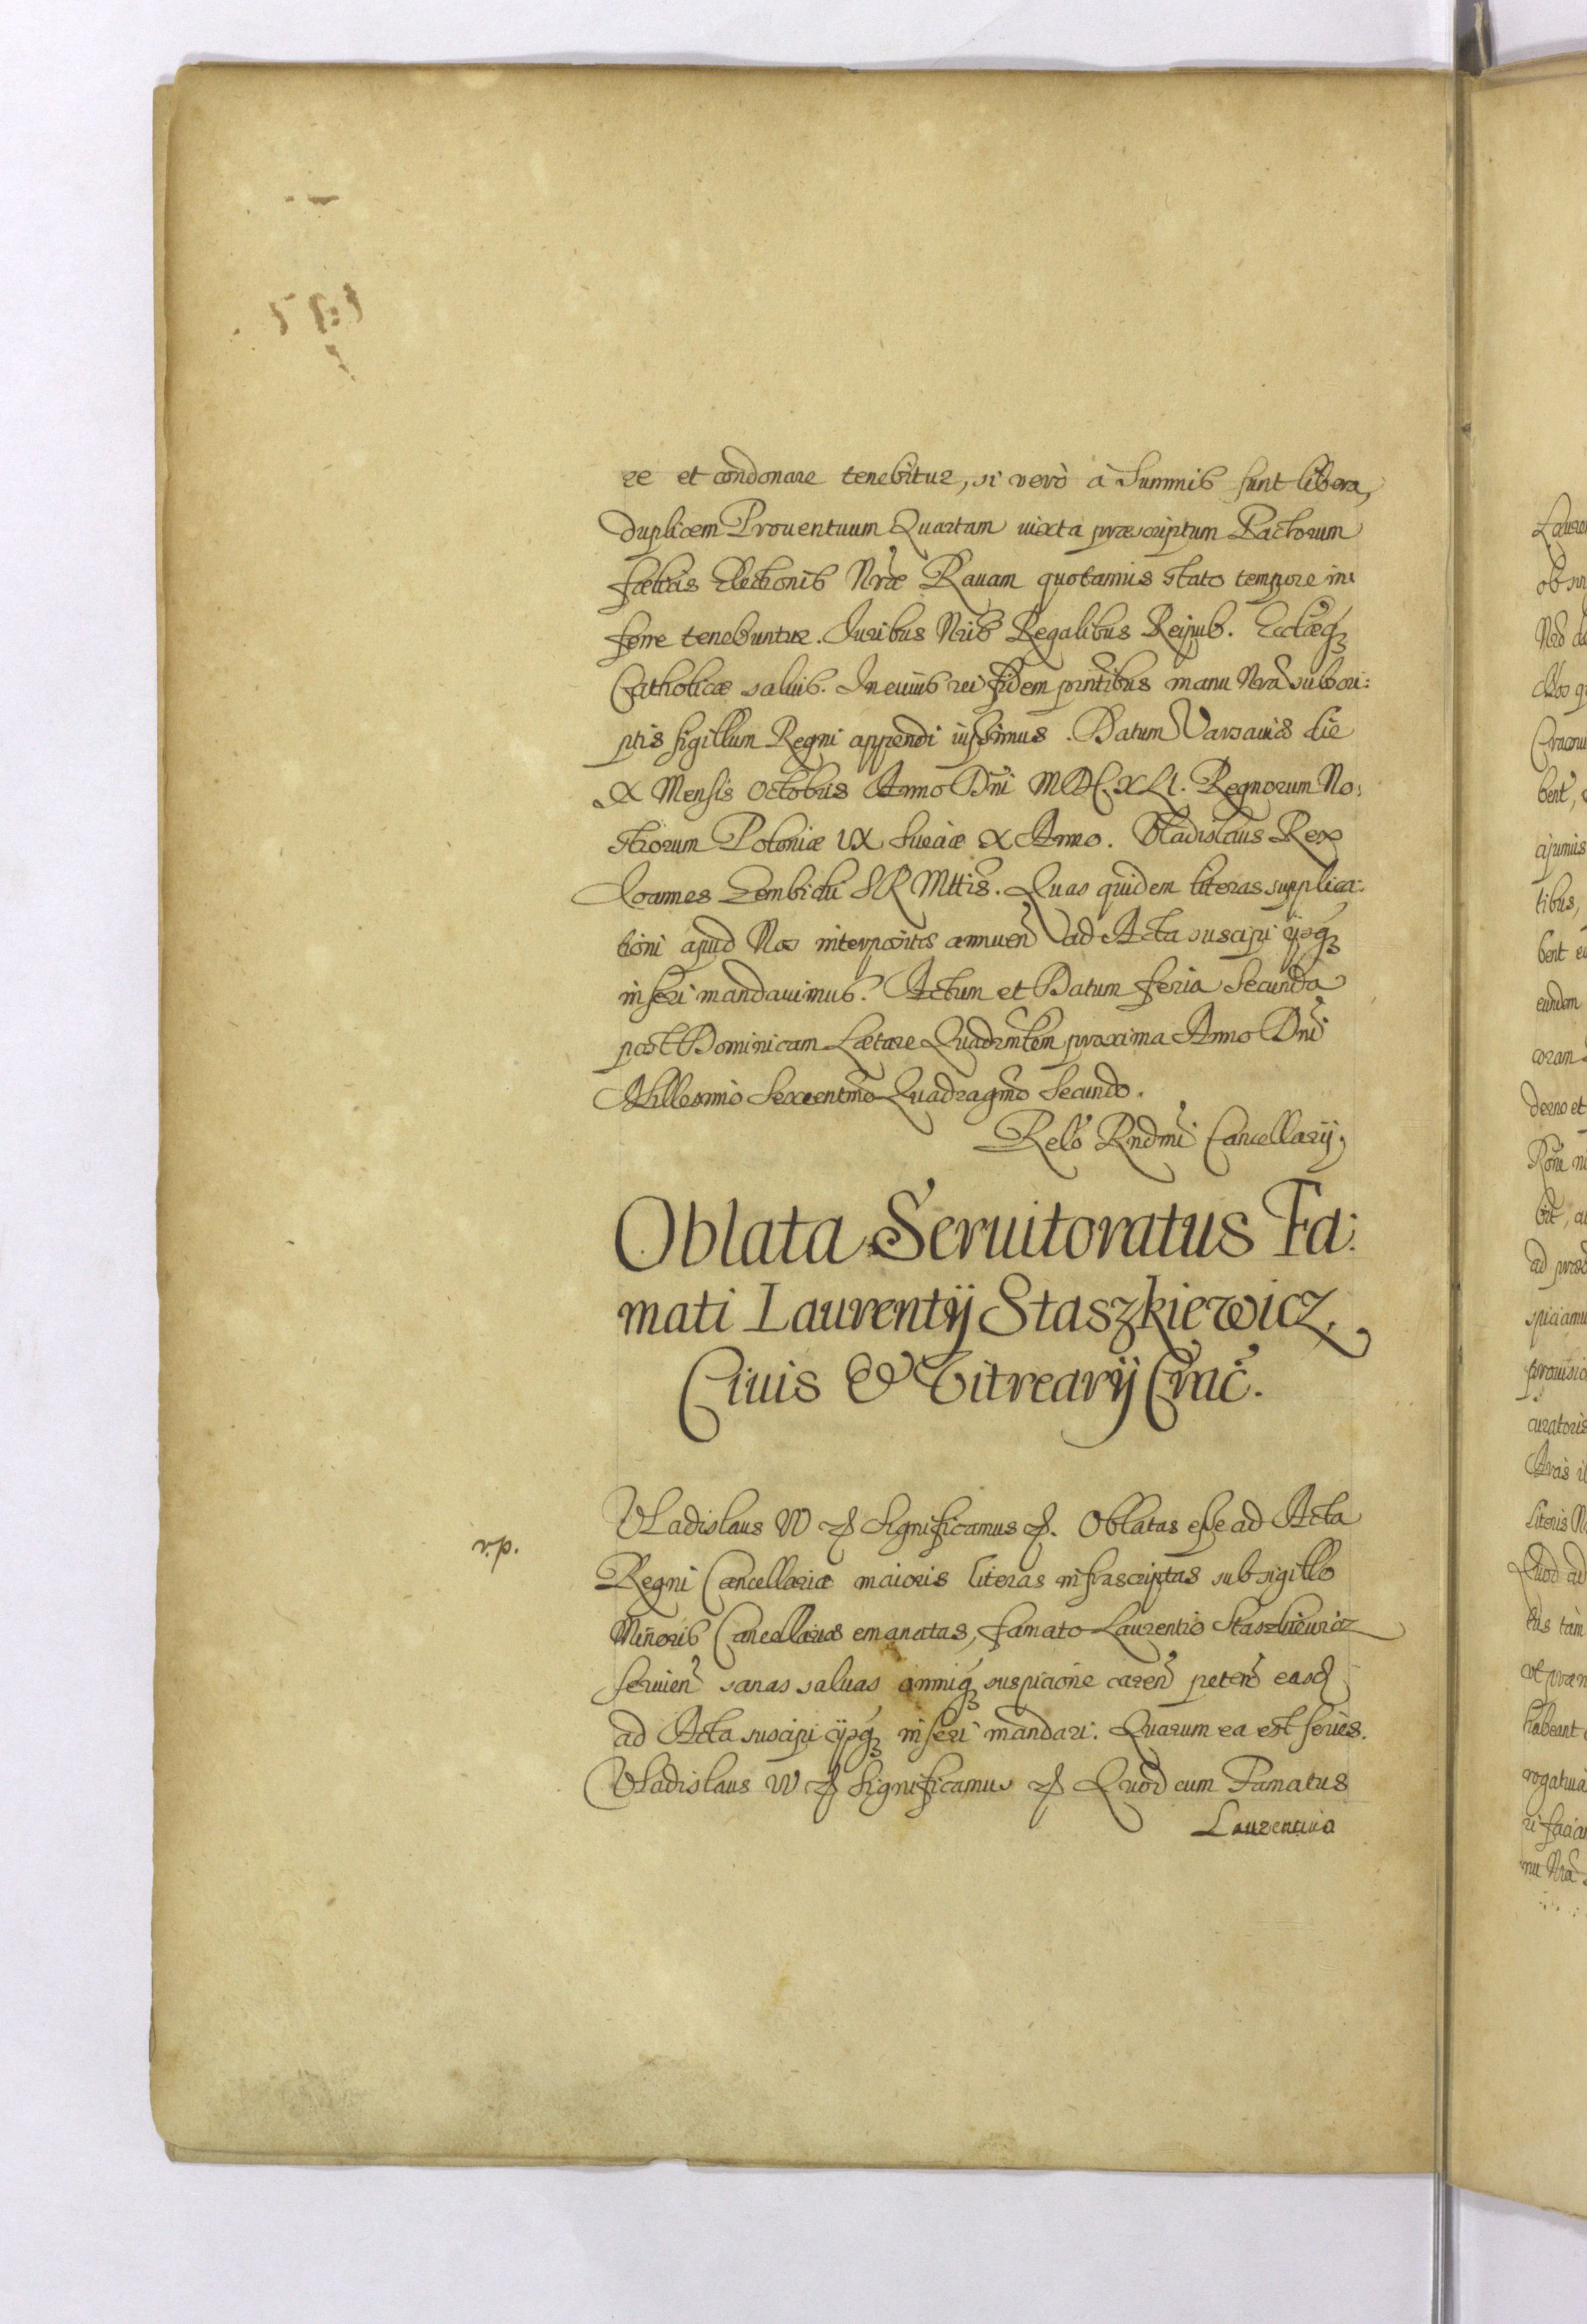 re et condonare tenebitur, si verò à Summis sunt libera,
duplicem Prouentuum Quartam iuxta præscriptum Pactorum
fælicis Electionis Nræ Rauam quotannis stato tempore in:
ferre tenebuntur. Iuribus Nris Regalibus Reipub. Ecclæq3
Catholicæ saluis. In cuius rei fidem pntibus manu Nra subscri:
ptis sigillum Regni appendi iussimus. Datum Varsauiæ die
X Mensis Octobris Anno Dni MDCXLI. Regnorum No:
strorum Poloniæ IX Sueciæ X Anno. Vladislaus Rex
Ioannes Zembicki SR Mttis. Quas quidem literas supplica:
tioni apud Nos interpositæ annuen ad Acta suscipi ijsq3
inseri mandauimus. Actum et Datum feria Secunda
post Dominicam Lætare Quadrmlem proxima Anno Dni
Millesimo Sexcentmo Quadragmo Secundo.
Relo Rndmi Cancellarij
Oblata Seruitoratus Fa:
mati Laurentij Staszkiewicz,
Ciuis & Vitrearij Crac.
Vladislaus IV Significamus. Oblatas esse ad Acta
Regni Cancellariæ maioris literas infrascriptas sub sigillo
Minoris Cancellariæ emanatas, famato Laurentio Staszkiewicz
seruien sanas saluas omniq3 suspicione caren peten easd
ad Acta suscipi ijsq3 inseri mandari. Quarum ea est series.
Vladislaus IV Significamus Quod cum Famatus
Laurentius